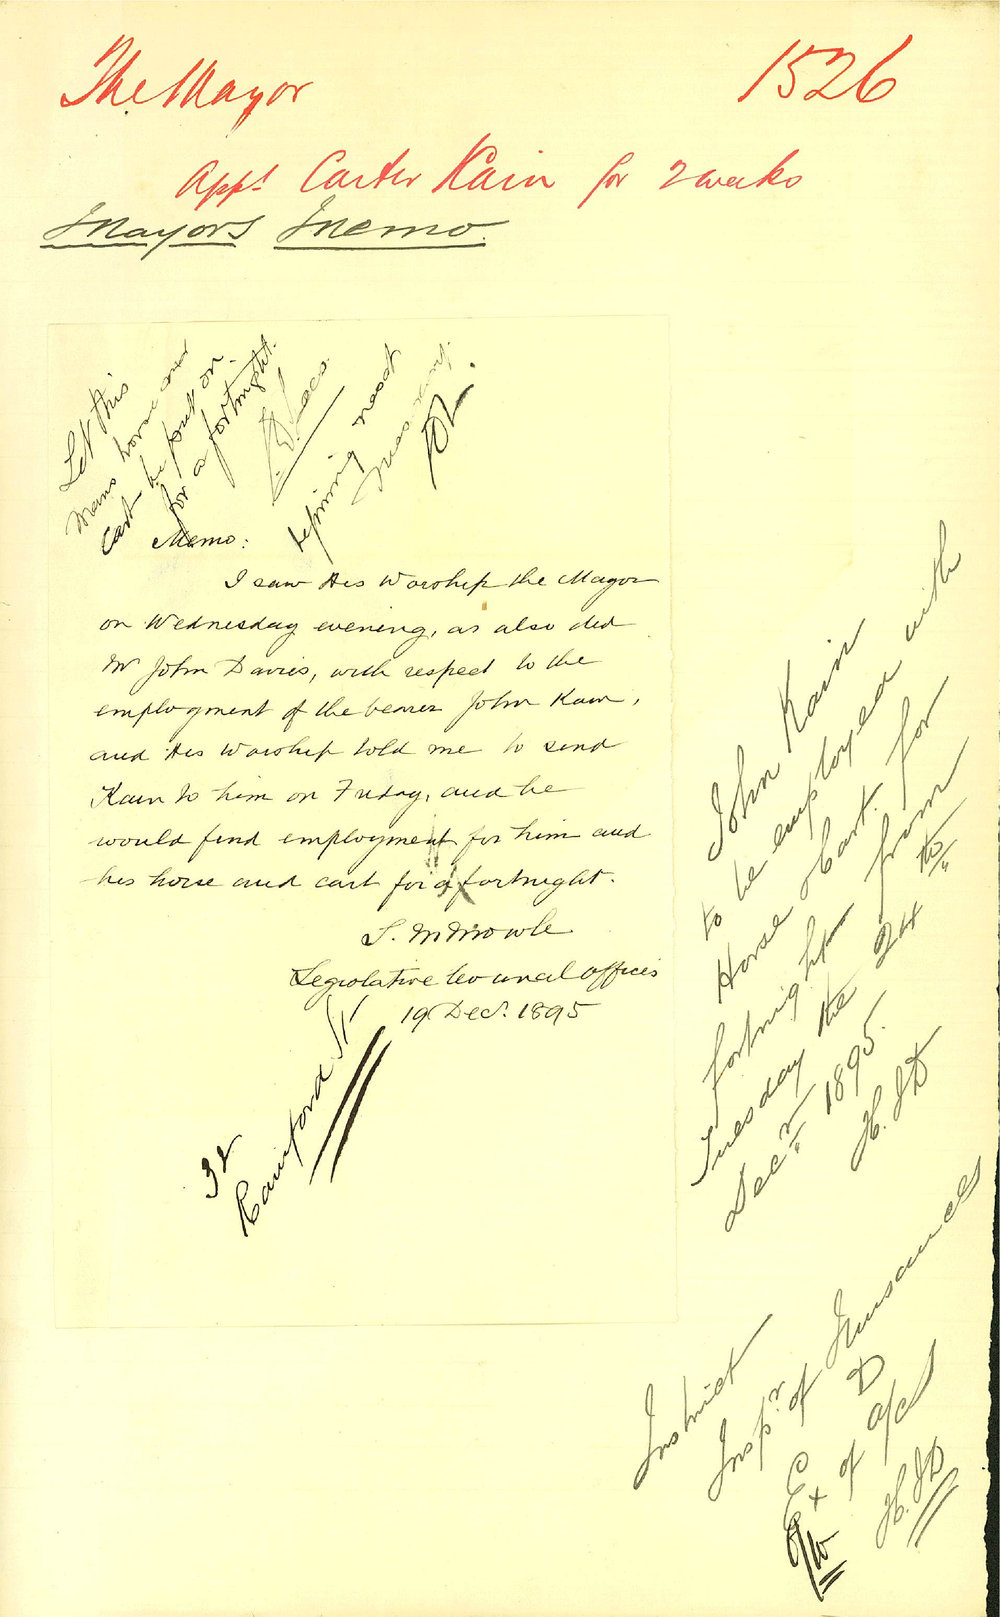 The Mayor
1526
Appt Carter Kain for 2 weeks
Mayors Memo.
Let this
mans horse and
cart be put on
for a fortnight.
beginning next
Memo:
I saw His Worship the Mayor
on Wednesday evening, as also did
Mr John Davies, with respect to the
employment of the bearer John Kain,
and His Worship told me to send
Kain to him on Friday, and he
would find employment for him and
his horse and cart for a fortnight.
Legislative Council Offices
19 Decr. 1895
32
Rainford St
John Kain
to be employed with
Horse & Cart for
fortnight from
Tuesday the 24th
Decr 1895.
H.JD
Instruct
Inspr of Nuisances
D
Ex of a/cs
H.JD